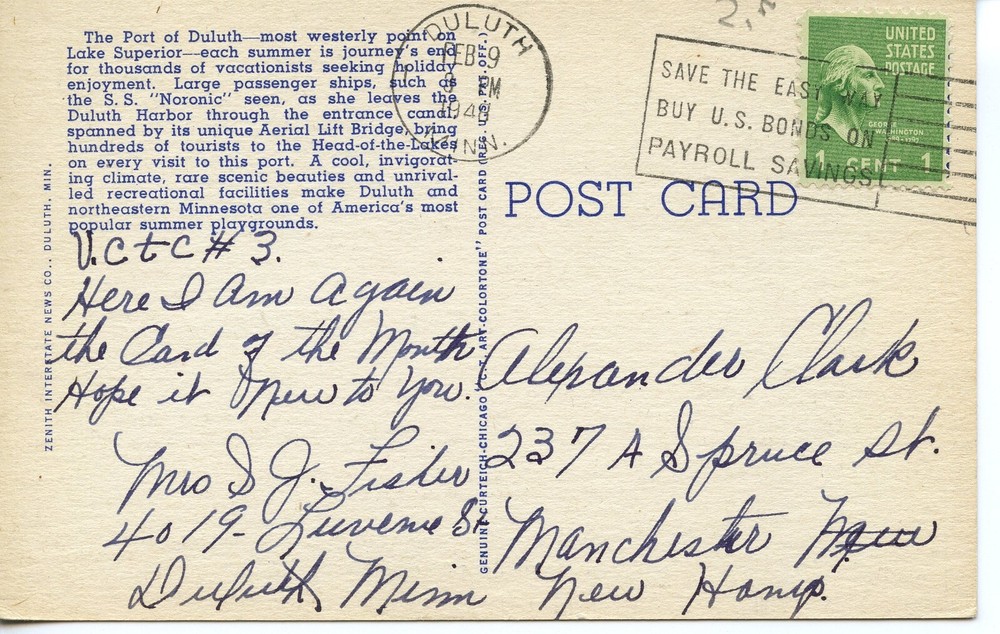 The Port of Duluth—most westerly point on
Lake Superior—each summer is journey's end
for thousands of vacationists seeking holiday
enjoyment. Large passenger ships, such as
the S.S. "Noronic" seen, as she leaves the
Duluth Harbor through the entrance canal
spanned by its unique Aerial Lift Bridge, bring
hundreds of tourists to the Head-of-the-Lakes
on every visit to this port. A cool, invigorat-
ing climate, rare scenic beauties and unrival-
led recreational facilities make Duluth and
northeastern Minnesota one of America's most
popular summer playgrounds.
V.C t C # 3.
Here I Am Again
the Card of the Month
Hope it New to You.
Mrs S J. Fisher
4019- Luverne St
Duluth Minn
ZENITH INTERSTATE NEWS CO., DULUTH, MIN.
GENUINE CURTEICH-CHICAGO "C.T. ART-COLORTONE" POST CARD (REG. U.S. PAT. OFF.)
DULUTH
FEB 9
PM
MINN.
SAVE THE EASY WAY
BUY U.S. BONDS ON
PAYROLL SAVINGS
UNITED
STATES
POSTAGE
GEORGE
WASHINGTON
1 CENT 1
POST CARD
Alexander Clark
237 A Spruce St.
Manchester
New Hamp.